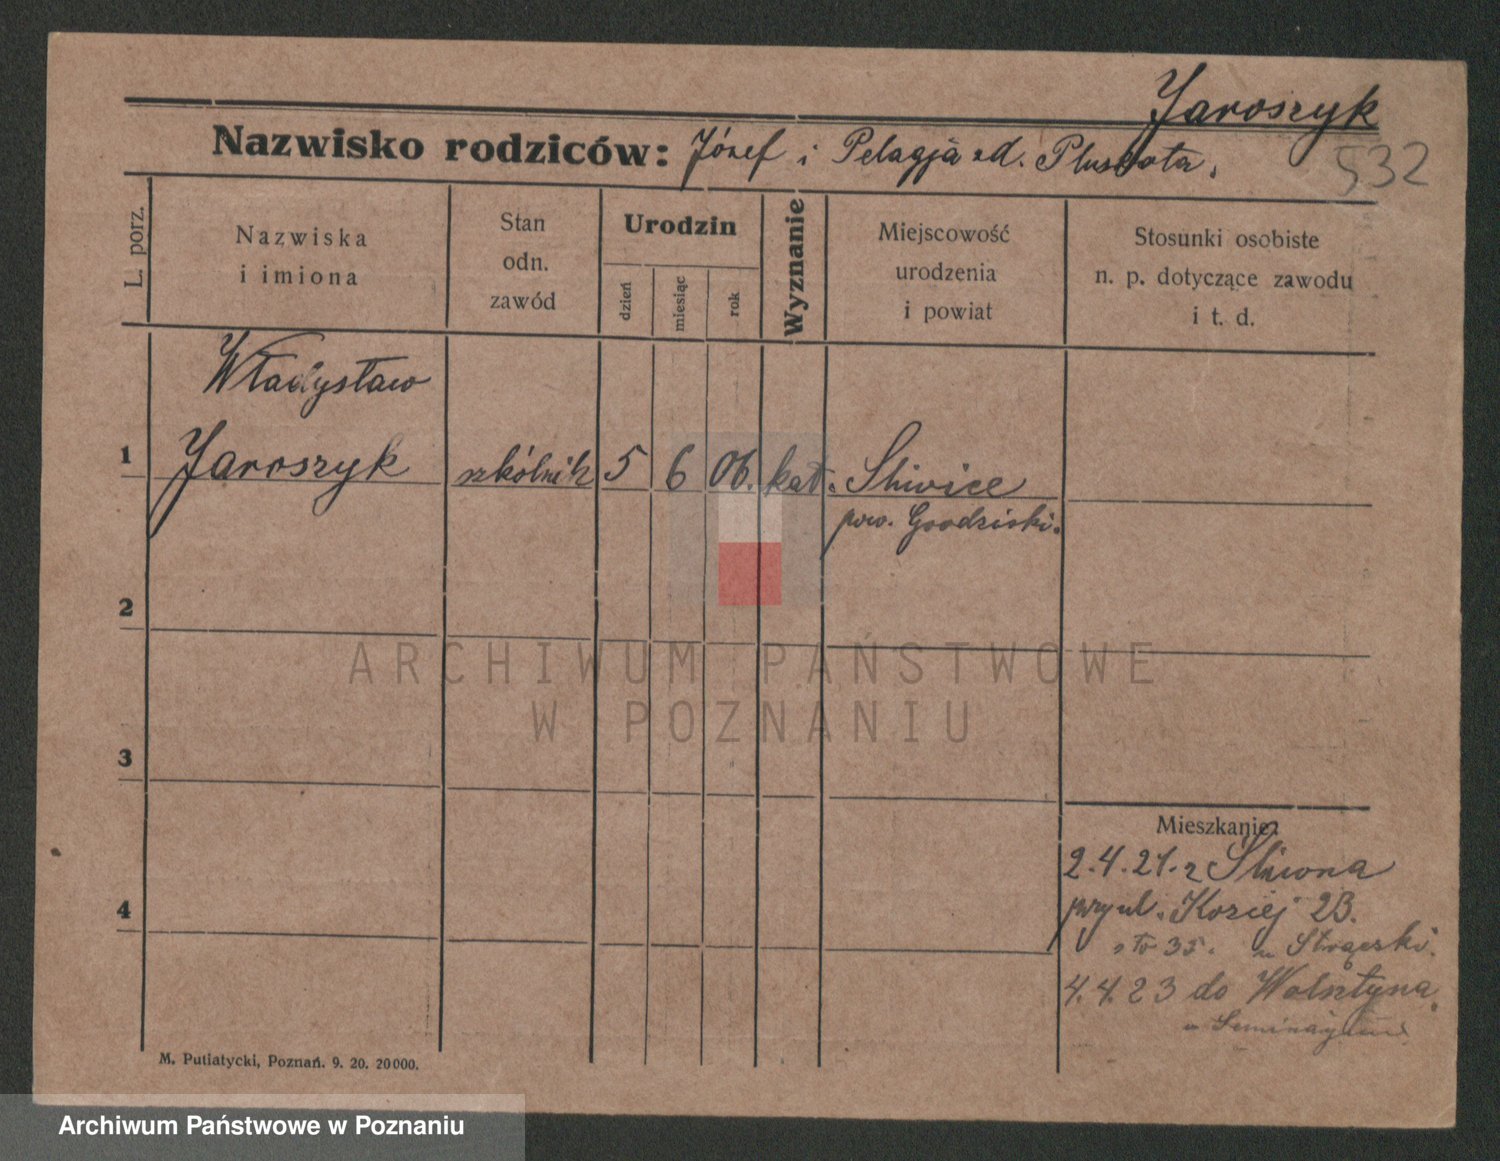 Jaroszyk
Nazwisko rodziców: Józef i Pelagja zd. Pluskota.
532
L. porz.
Nazwiska
i imiona
Stan
odn.
zawód
Urodzin
dzień
miesiąc
rok
Wyznanie
Miejscowość
urodzenia
i powiat
Stosunki osobiste
n. p. dotyczące zawodu
i t. d.
Władysław
1 Jaroszyk szkólnik 5 6 06. kat. Śliwice
pow. Grodziski.
2
ARCHIWUM PAŃSTWOWE
W POZNANIU
3
Mieszkanie:
2.4.21. z Śliwna
przy ul. Koziej 23.
4
35. u Strączki.
4.4.23 do Wolsztyna.
w Seminarjum
M. Putiatycki, Poznań. 9. 20. 20000.
Archiwum Państwowe w Poznaniu